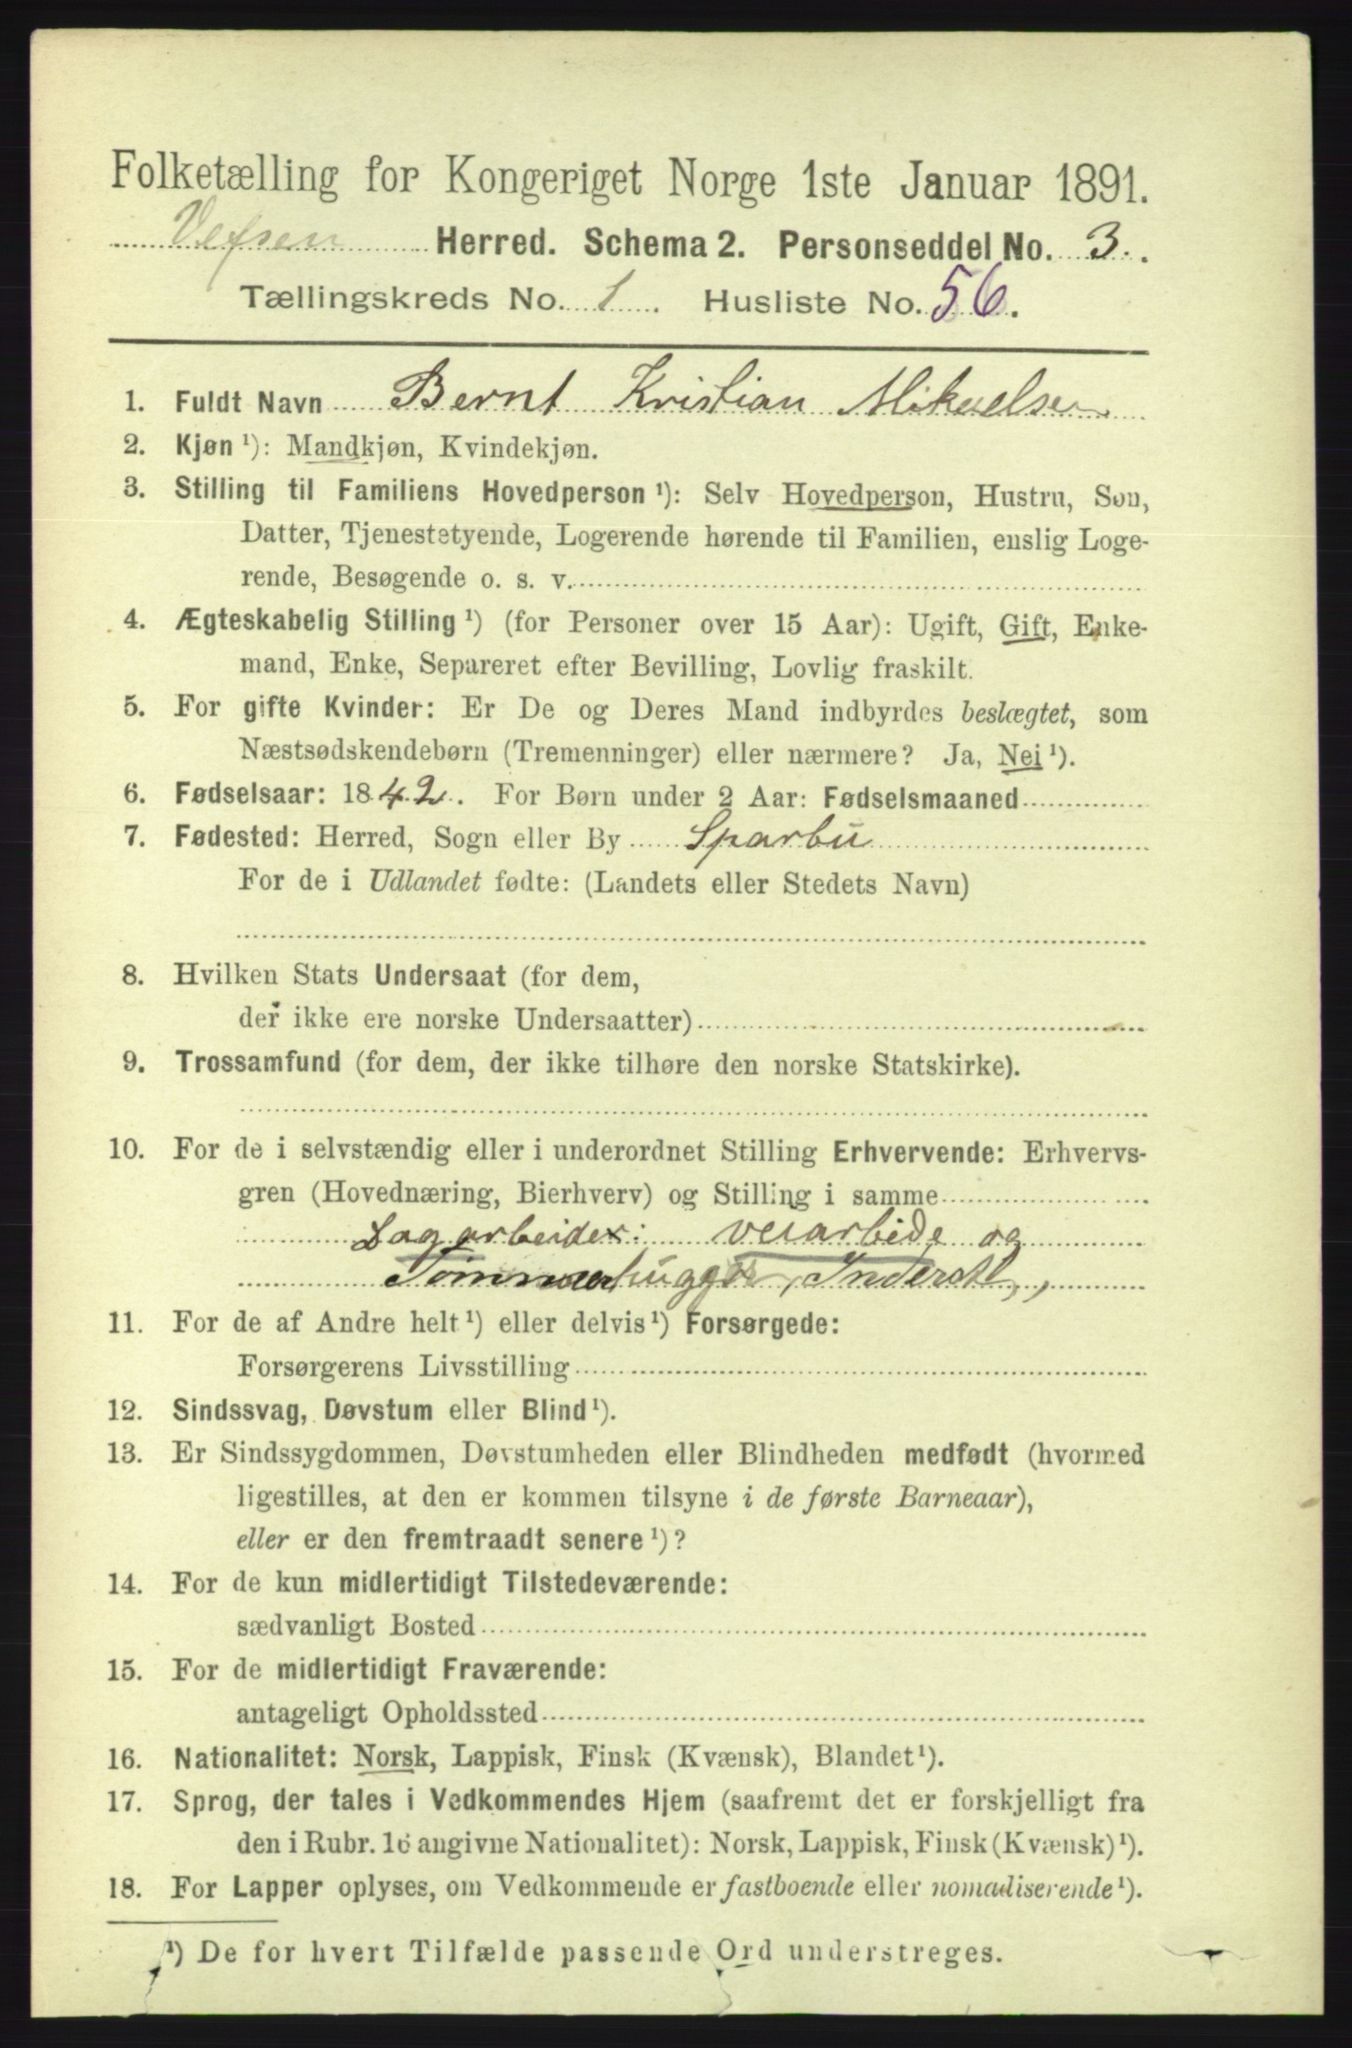 Folketælling for Kongeriget Norge 1ste Januar 1891.
Vefsen Herred. Schema 2. Personseddel No. 3.
Tællingskreds No. 1. Husliste No. 56.
1. Fuldt Navn Bernt Kristian Mikaelsen
2. Kjøn ¹): Mandkjøn, Kvindekjøn.
3. Stilling til Familiens Hovedperson ¹): Selv Hovedperson, Hustru, Søn,
Datter, Tjenestetyende, Logerende hørende til Familien, enslig Loge-
rende, Besøgende o. s. v.
4. Ægteskabelig Stilling ¹) (for Personer over 15 Aar): Ugift, Gift, Enke-
mand, Enke, Separeret efter Bevilling, Lovlig fraskilt.
5. For gifte Kvinder: Er De og Deres Mand indbyrdes beslægtet, som
Næstsødskendebørn (Tremenninger) eller nærmere? Ja, Nei ¹).
6. Fødselsaar: 1842. For Børn under 2 Aar: Fødselsmaaned
7. Fødested: Herred, Sogn eller By Sparbu
For de i Udlandet fødte: (Landets eller Stedets Navn)
8. Hvilken Stats Undersaat (for dem,
der ikke ere norske Undersaatter)
9. Trossamfund (for dem, der ikke tilhøre den norske Statskirke).
10. For de i selvstændig eller i underordnet Stilling Erhvervende: Erhvervs-
gren (Hovednæring, Bierhverv) og Stilling i samme
Dagarbeider: veiarbeide og
Tømmerhugger, Inderst,
11. For de af Andre helt ¹) eller delvis ¹) Forsørgede:
Forsørgerens Livsstilling
12. Sindssvag, Døvstum eller Blind ¹).
13. Er Sindssygdommen, Døvstumheden eller Blindheden medfødt (hvormed
ligestilles, at den er kommen tilsyne i de første Barneaar),
eller er den fremtraadt senere ¹)?
14. For de kun midlertidigt Tilstedeværende:
sædvanligt Bosted
15. For de midlertidigt Fraværende:
antageligt Opholdssted
16. Nationalitet: Norsk, Lappisk, Finsk (Kvænsk), Blandet ¹).
17. Sprog, der tales i Vedkommendes Hjem (saafremt det er forskjelligt fra
den i Rubr. 16 angivne Nationalitet): Norsk, Lappisk, Finsk (Kvænsk) ¹).
18. For Lapper oplyses, om Vedkommende er fastboende eller nomadiserende ¹).
¹) De for hvert Tilfælde passende Ord understreges.